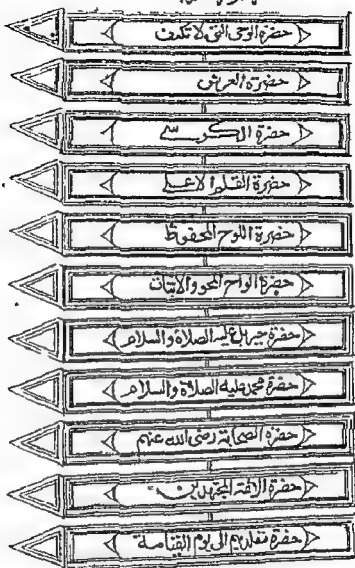 حضرة الوحى التى لا تكيف
حضرة العرش
حضرة الكرسى
حضرة القلم الاعلى
حضرة اللوح المحفوظ
حضرة الواح المحو والاثبات
حضرة جبريل عليه الصلاة والسلام
حضرة محمد عليه الصلاة والسلام
حضرة الصحابة رضى الله عنهم
حضرة الائمة المجتهدين
حضرة مقلديهم الى يوم القيامة